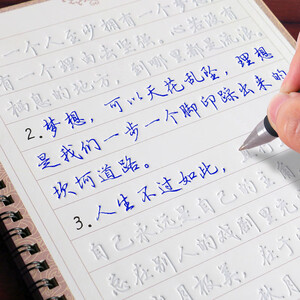 一个人至少拥有一个梦想
有一个理由去坚强。心若没有
栖息的地方,到哪里都是流浪
2.梦想,可以天花乱坠,理想
是我们一步一个脚印踩出来的
坎坷道路。
3.人生不过如此,
自己永远是自己的主角
总在别人的戏剧里充
月极美,在于